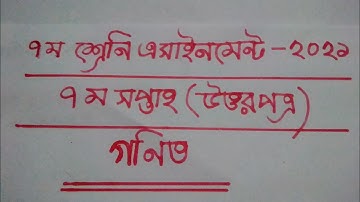 ৭ম শ্রেনি এসাইনমেন্ট - ২০২১
৭ম সপ্তাহ (উত্তরপত্র)
গনিত